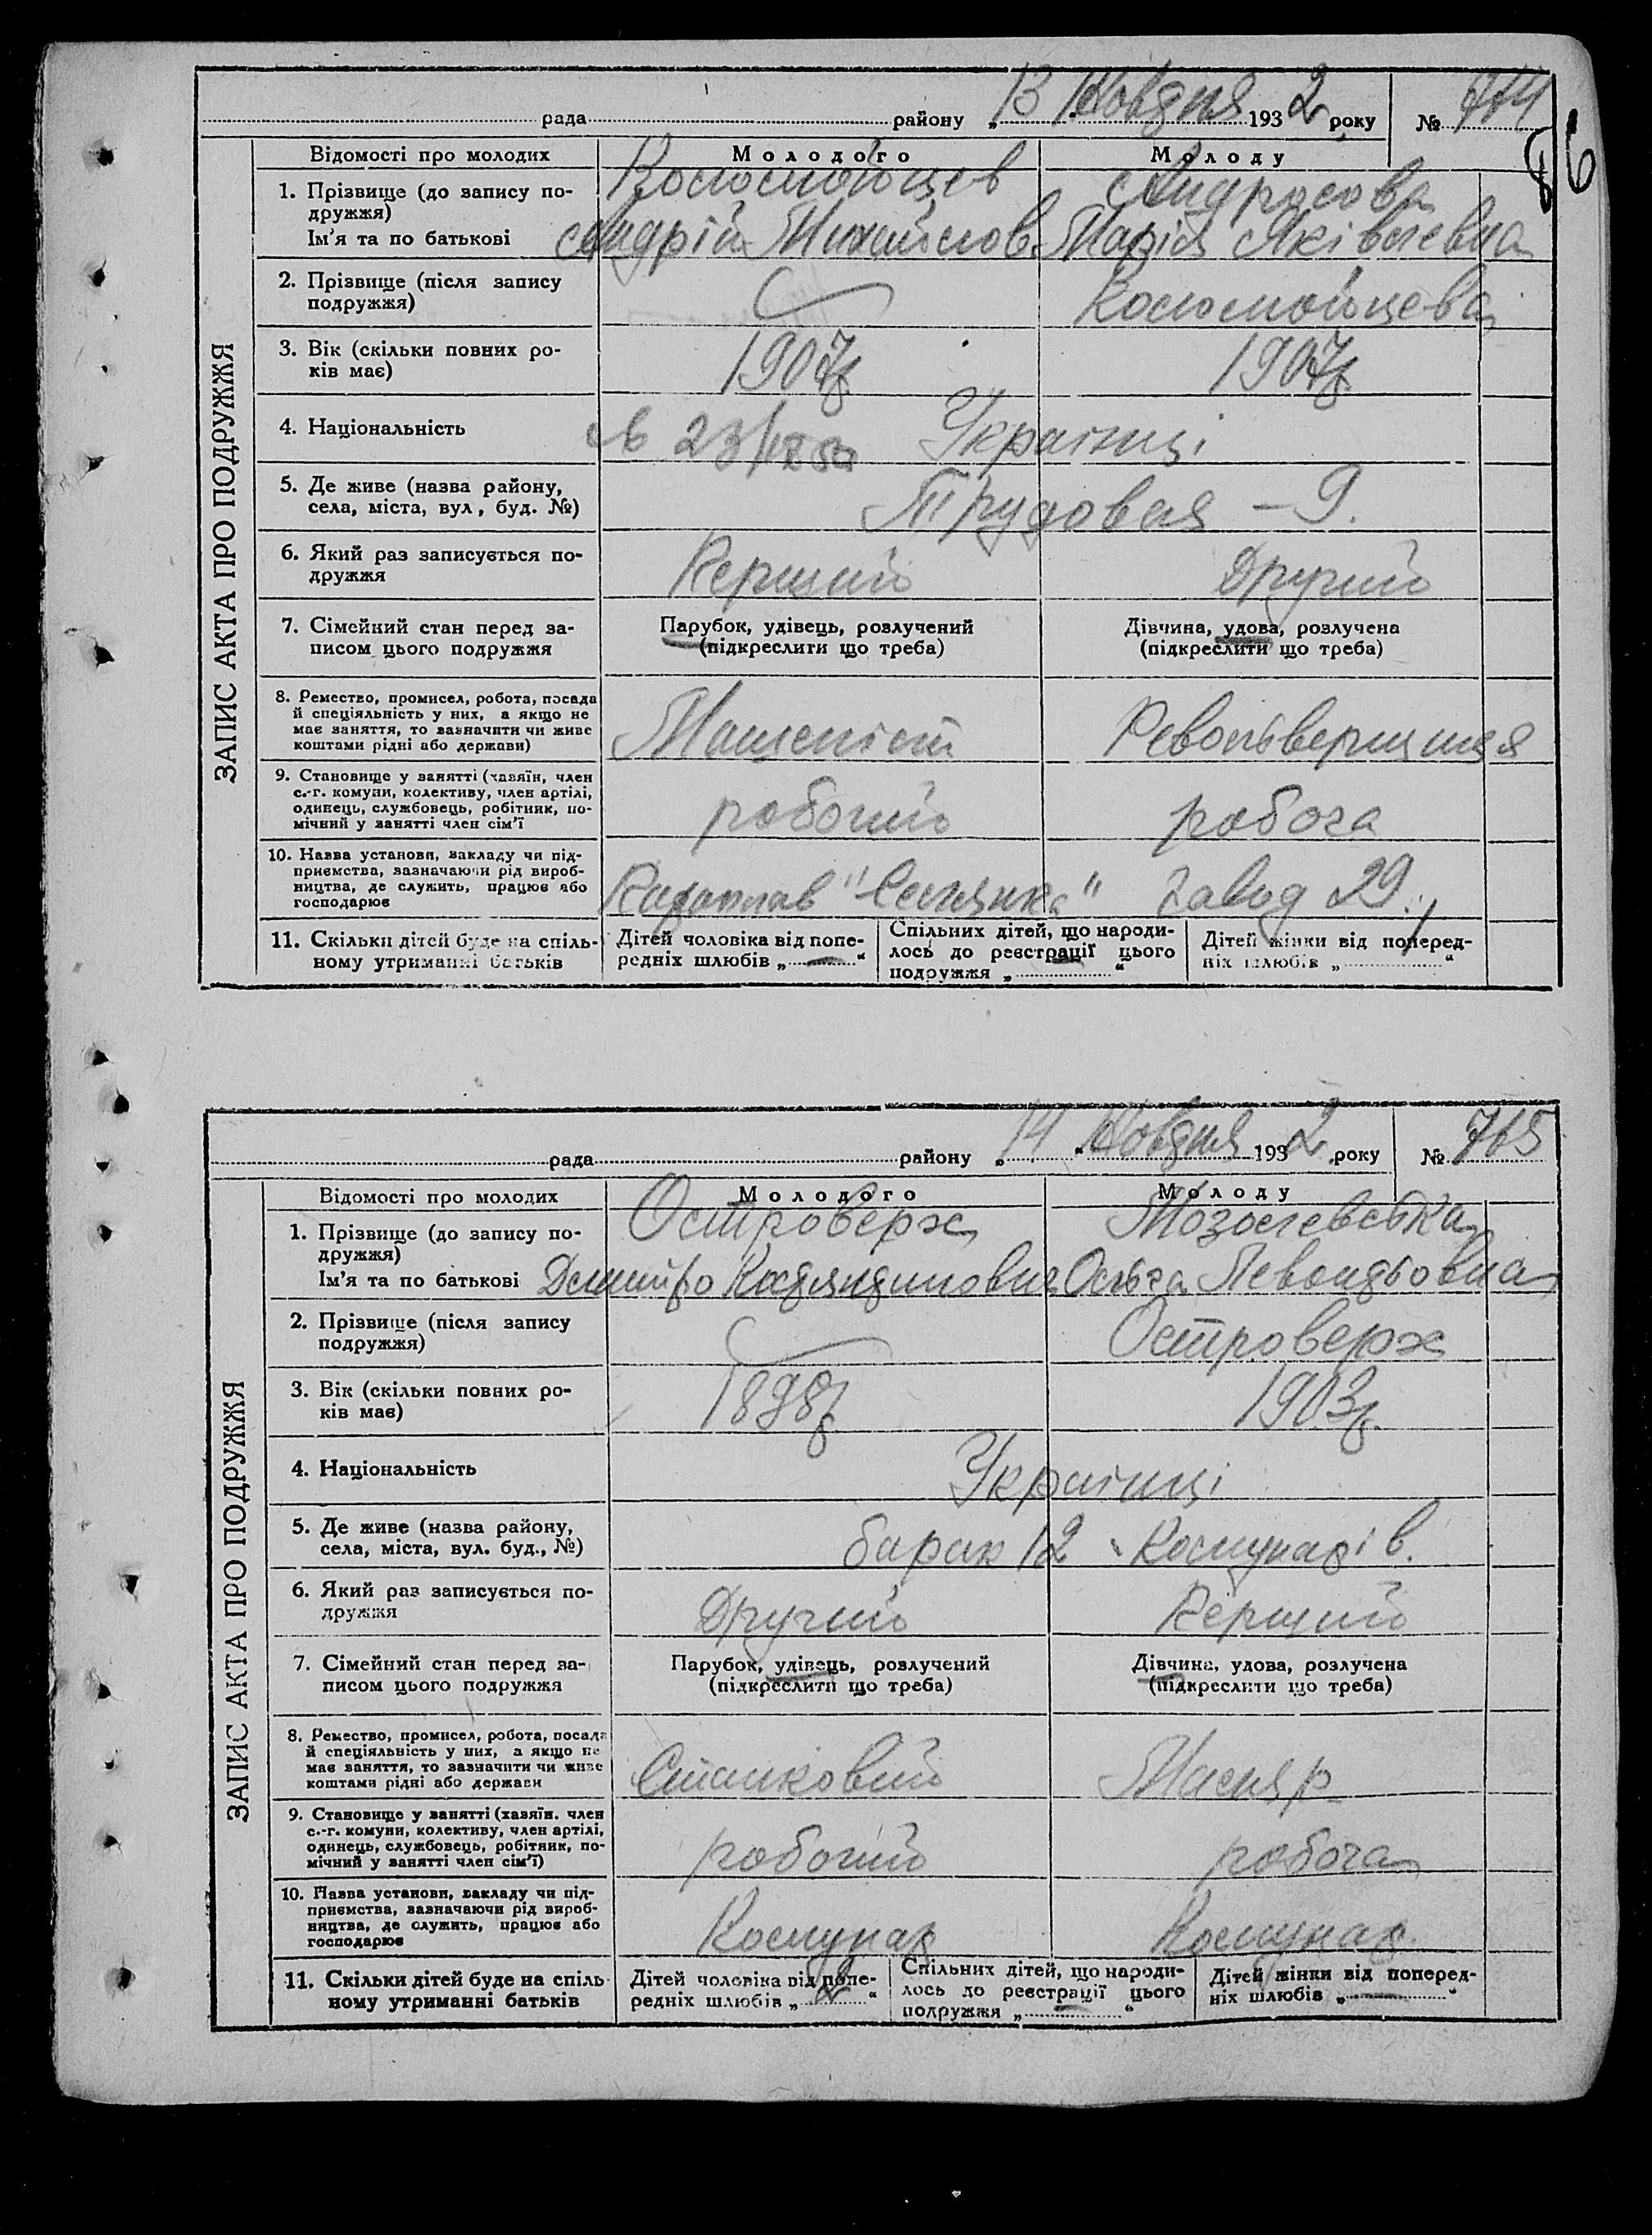 рада районु „13 Жовдня 1932 року № 714
86
ЗАПИС АКТА ПРО ПОДРУЖЖЯ
Відомості про молодих Молодого Молоду
1. Прізвище (до запису подружжя) Коломойцев Андросова
Ім'я та по батькові Андрій Михайлов. Марія Яківлевна
2. Прізвище (після запису
подружжя) Коломойцева
3. Вік (скільки повних ро-
ків має) 1907р 1907р
4. Національність Українці
5. Де живе (назва району,
села, міста, вул, буд. №) Трудовая – 9.
6. Який раз записується по-
дружжя Перший Другий
7. Сімейний стан перед за- Парубок, удівець, розлучений Дівчина, удова, розлучена
писом цього подружжя (підкреслити що треба) (підкреслити що треба)
8. Ремество, промисел, робота, посада
й спеціяльність у них, а якщо не
має заняття, то зазначити чи живе
коштами рідні або держави) Машеніст Револьверщиця
9. Становище у занятті (хазяїн, член
с.-г. комуни, колективу, член артілі,
одинець, службовець, робітник, по-
мічний у занятті член сім'ї робочий робоча
10. Назва установи, закладу чи під-
приємства, зазначаючи рід вироб-
ництва, де служить, працює або
господарює завод 29.
11. Скільки дітей буде на спіль- Дітей чоловіка від попе- Спільних дітей, що народи- Дітей жінки від поперед-
ному утриманні батьків редніх шлюбів „ — “ лось до реєстрації цього ніх шлюбів „ “
подружжя „ “
рада району „14 “ Жовдня 1932 року № 715
ЗАПИС АКТА ПРО ПОДРУЖЖЯ
Відомості про молодих Молодого Молоду
1. Прізвище (до запису по-
дружжя) Островерх Мозолевська
Ім'я та по батькові Дмитро Ольга
2. Прізвище (після запису
подружжя) Островерх
3. Вік (скільки повних ро-
ків має) 1898р 1903р.
4. Національність Українці
5. Де живе (назва району,
села, міста, вул. буд., №) барак 12 Комунарів.
6. Який раз записується по-
дружжя Другий Перший
7. Сімейний стан перед за- Парубок, удівець, розлучений Дівчина, удова, розлучена
писом цього подружжя (підкреслити що треба) (підкреслити що треба)
8. Ремество, промисел, робота, посада
й спеціяльність у них, а якщо не
має заняття, то зазначити чи живе
коштами рідні або держави Станковий Маляр
9. Становище у занятті (хазяїн. член
с.-г. комуни, колективу, член артілі,
одинець, службовець, робітник, по-
мічний у занятті член сім'ї) робочий робоча
10. Назва установи, закладу чи під-
приємства, зазначаючи рід вироб-
ництва, де служить, працює або
господарює Комунар Комунар
11. Скільки дітей буде на спіль- Дітей чоловіка від попе- Спільних дітей, що народи- Дітей жінки від поперед-
ному утриманні батьків редніх шлюбів „ 2 “ лось до реєстрації цього ніх шлюбів „ — “
подружжя „ “